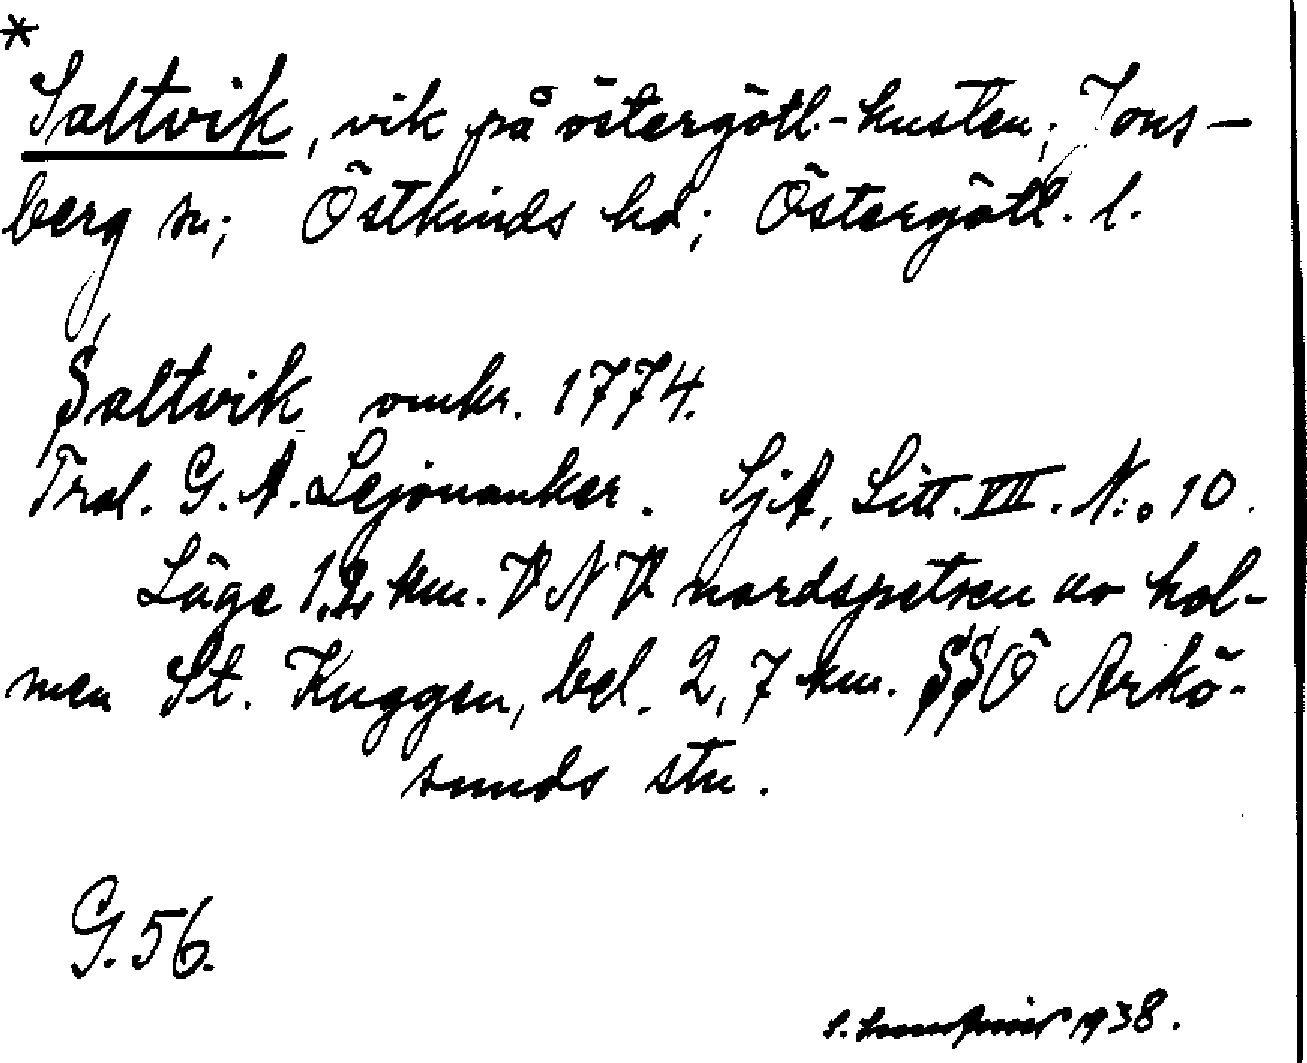 *
Saltvik, vik på östergötl.-kusten; Jons-
berg sn; Östkinds hd; Östergötl. l.
Saltvik omkr. 1774.
Trol. G. A. Lejonanker. SjA, Litt. VII. N:o 10.
Läge 1,2 km. VNV nordspetsen av hol-
men St. Kuggen, bel. 2,7 km. SSÖ Arkö-
sunds stn.
G. 56.
S. 1938.